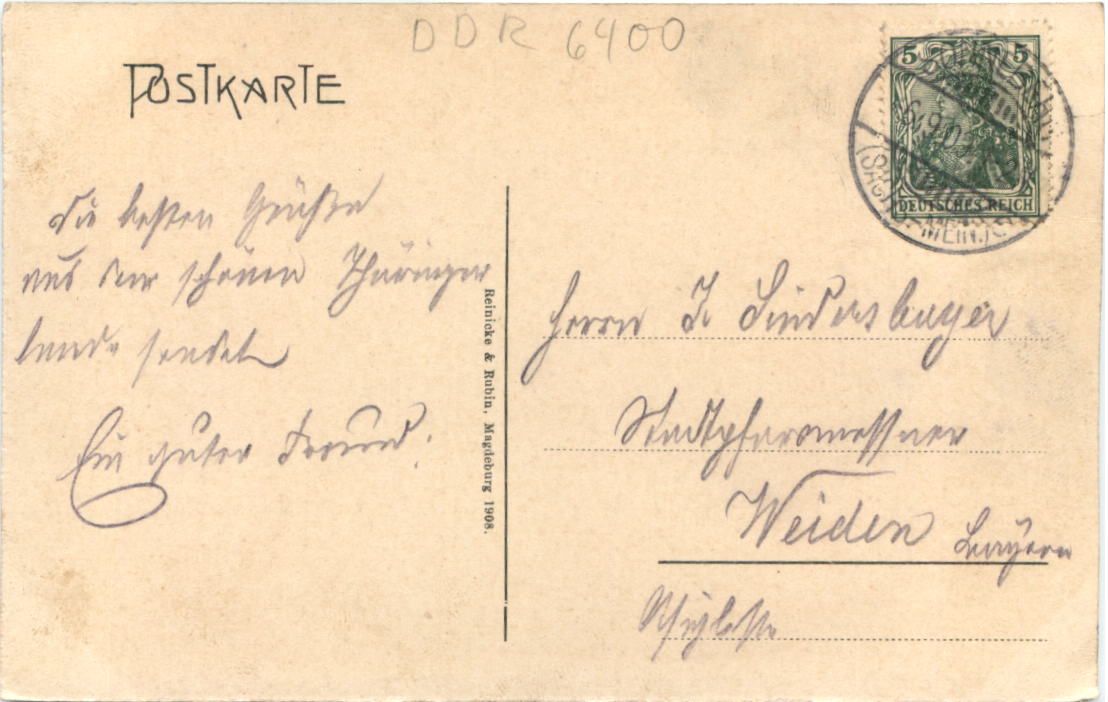 DDR 6400
POSTKARTE
5 5
DEUTSCHES REICH
Die besten Grüße
aus dem schönen Thüringer
lande sendet
Ein guter Freund.
Reinicke & Rubin, Magdeburg 1908.
Herrn J. Lindersbayer
Stadtpfarrmessner
Weiden Bayern